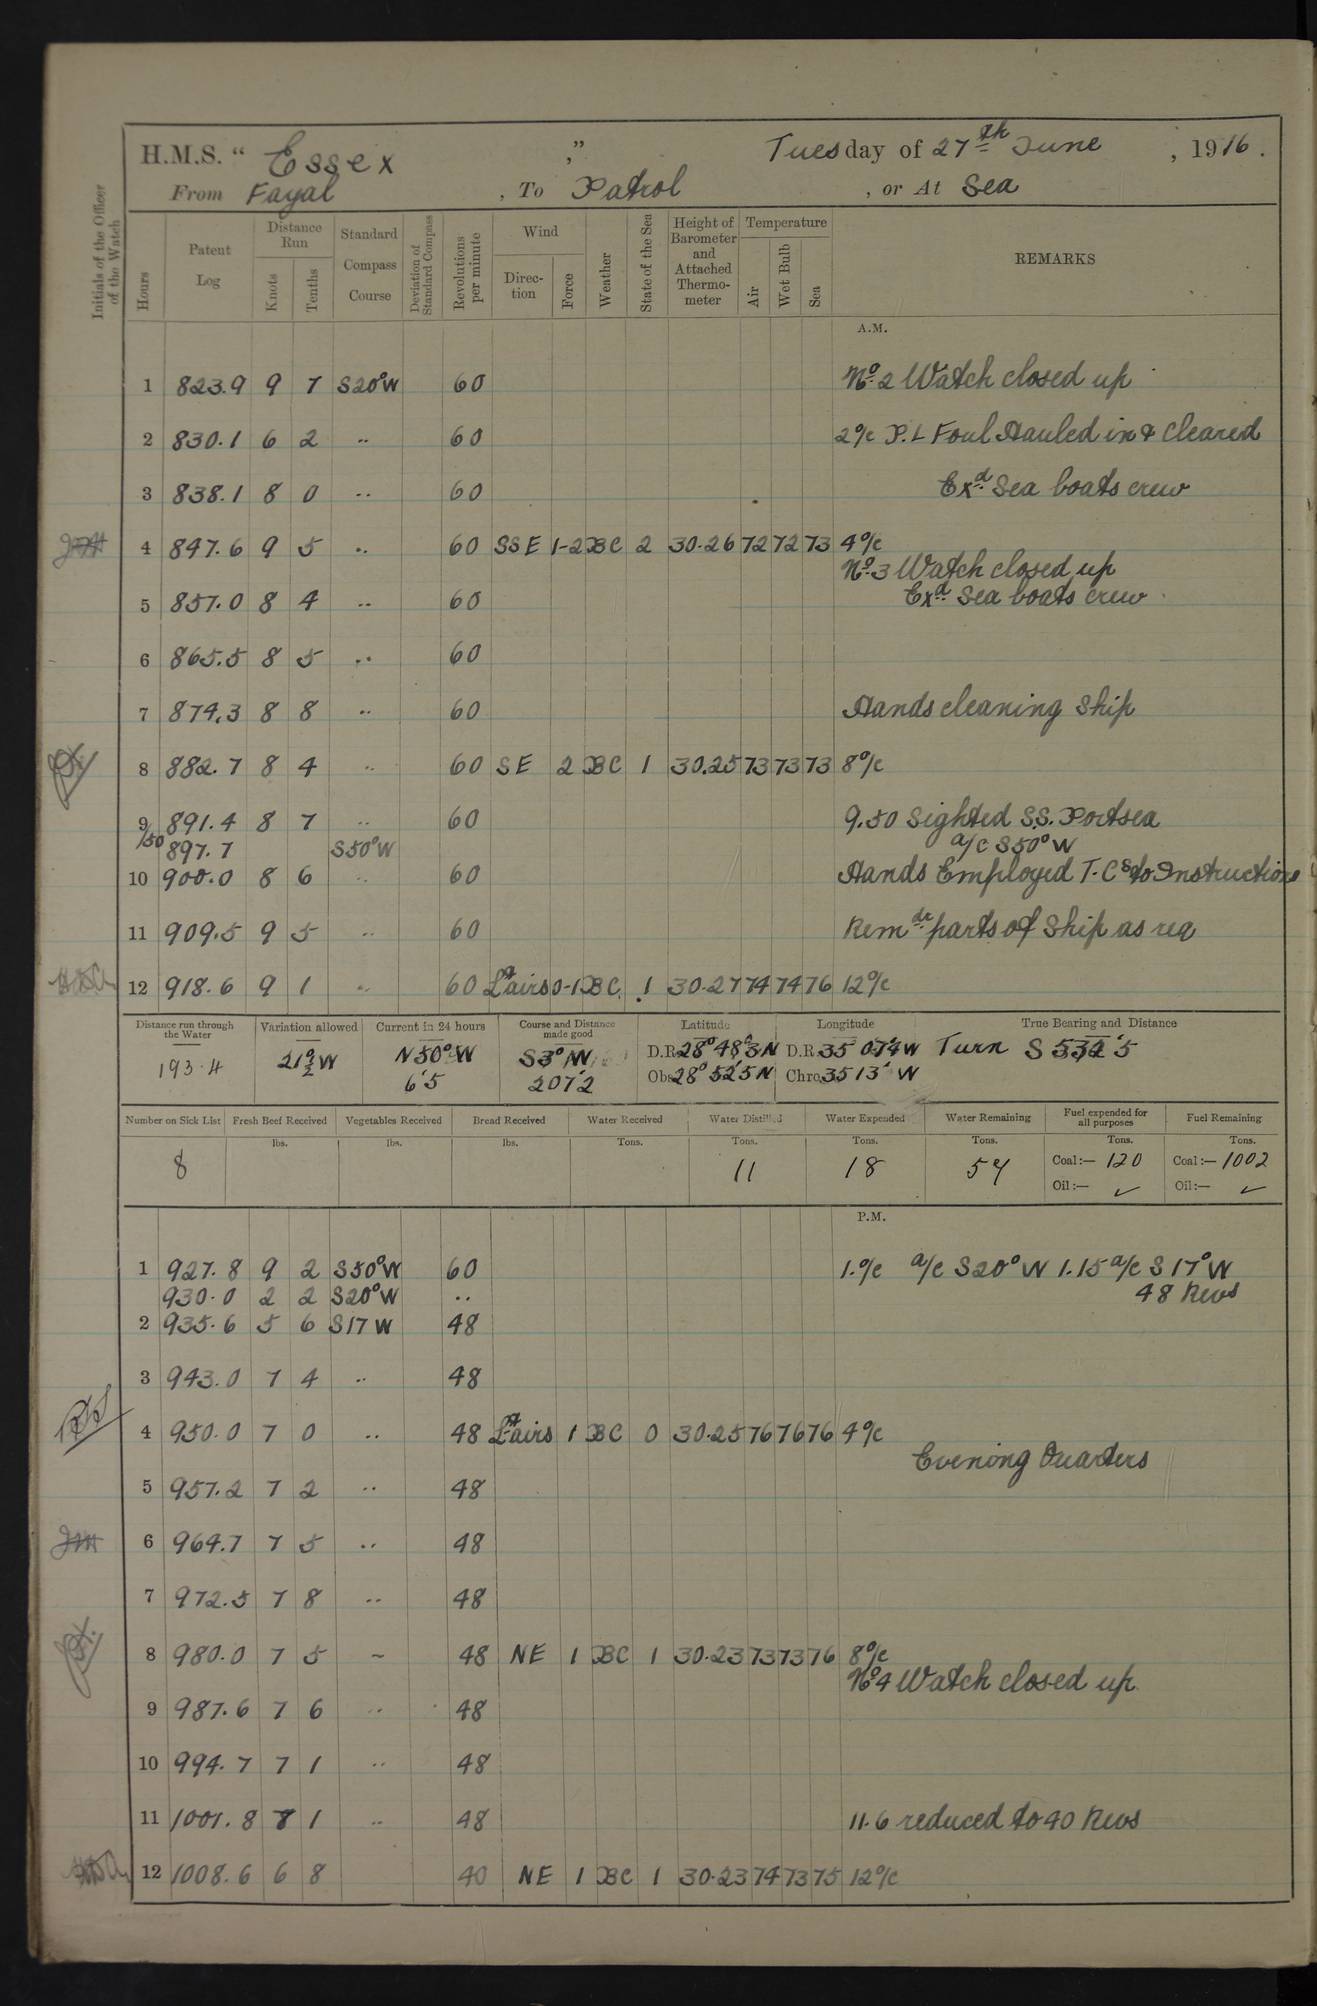 H.M.S. “ Essex ,” Tuesday of 27th June , 1916.
From Fayal , To Patrol , or At Sea
Initials of the Officer of the Watch
Hours
Patent Log
Distance Run
Knots
Tenths
Standard Compass Course
Deviation of Standard Compass
Revolutions per minute
Wind
Direction
Force
Weather
State of the Sea
Height of Barometer and Attached Thermometer
Temperature
Air
Wet Bulb
Sea
REMARKS
A.M.
1 823.9 9 7 S20°W 60 No. 2 Watch closed up
2 830.1 6 2 .. 60 2 o/c P.L Foul Hauled in & Cleared
3 838.1 8 0 .. 60 Exd. Sea boats crew
4 847.6 9 5 .. 60 SSE 1-2 BC 2 30.26 72 72 73 4 o/c
No. 3 Watch closed up
5 857.0 8 4 .. 60 Exd. Sea boats crew
6 865.5 8 5 .. 60
7 874.3 8 8 .. 60 Hands cleaning Ship
8 882.7 8 4 .. 60 SE 2 BC 1 30.25 73 73 73 8 o/c
9 891.4 8 7 .. 60 9.50 Sighted S.S. Portsea
/50 897.7 S50°W a/c S50°W
10 900.0 8 6 .. 60 Hands Employed T.Cs to Instructions
11 909.5 9 5 .. 60 Remdr parts of Ship as req
12 918.6 9 1 .. 60 Lt airs 0-1 BC 1 30.27 74 74 76 12 o/c
Distance run through the Water
193.4
Variation allowed
21½°W
Current in 24 hours
N50°W
6'5
Course and Distance made good
S3°W
207'2
Latitude
D.R. 28° 48'3 N
Obs. 28° 52'5 N
Longitude
D.R. 35° 07'4 W
Chro. 35 13' W
True Bearing and Distance
Turn S
Number on Sick List
8
Fresh Beef Received
lbs.
Vegetables Received
lbs.
Bread Received
lbs.
Water Received
Tons.
Water Distilled
Tons.
11
Water Expended
Tons.
18
Water Remaining
Tons.
54
Fuel expended for all purposes
Tons.
Coal:— 120
Oil:— ✓
Fuel Remaining
Tons.
Coal:— 1002
Oil:— ✓
P.M.
1 927.8 9 2 S50°W 60 1. o/c a/c S20°W 1.15 a/c S17°W
930.0 2 2 S20°W .. 48 Revs
2 935.6 5 6 S17W 48
3 943.0 7 4 .. 48
4 950.0 7 0 .. 48 Lt airs 1 BC 0 30.25 76 76 76 4 o/c
Evening Quarters
5 957.2 7 2 .. 48
6 964.7 7 5 .. 48
7 972.5 7 8 .. 48
8 980.0 7 5 ~ 48 NE 1 BC 1 30.23 73 73 76 8 o/c
No. 4 Watch closed up
9 987.6 7 6 .. 48
10 994.7 7 1 .. 48
11 1001.8 7 1 .. 48 11.6 reduced to 40 Revs
12 1008.6 6 8 40 NE 1 BC 1 30.23 74 73 75 12 o/c